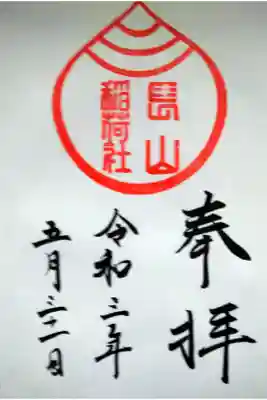 奉拝
山
稲荷社
令和三年
五月三十一日